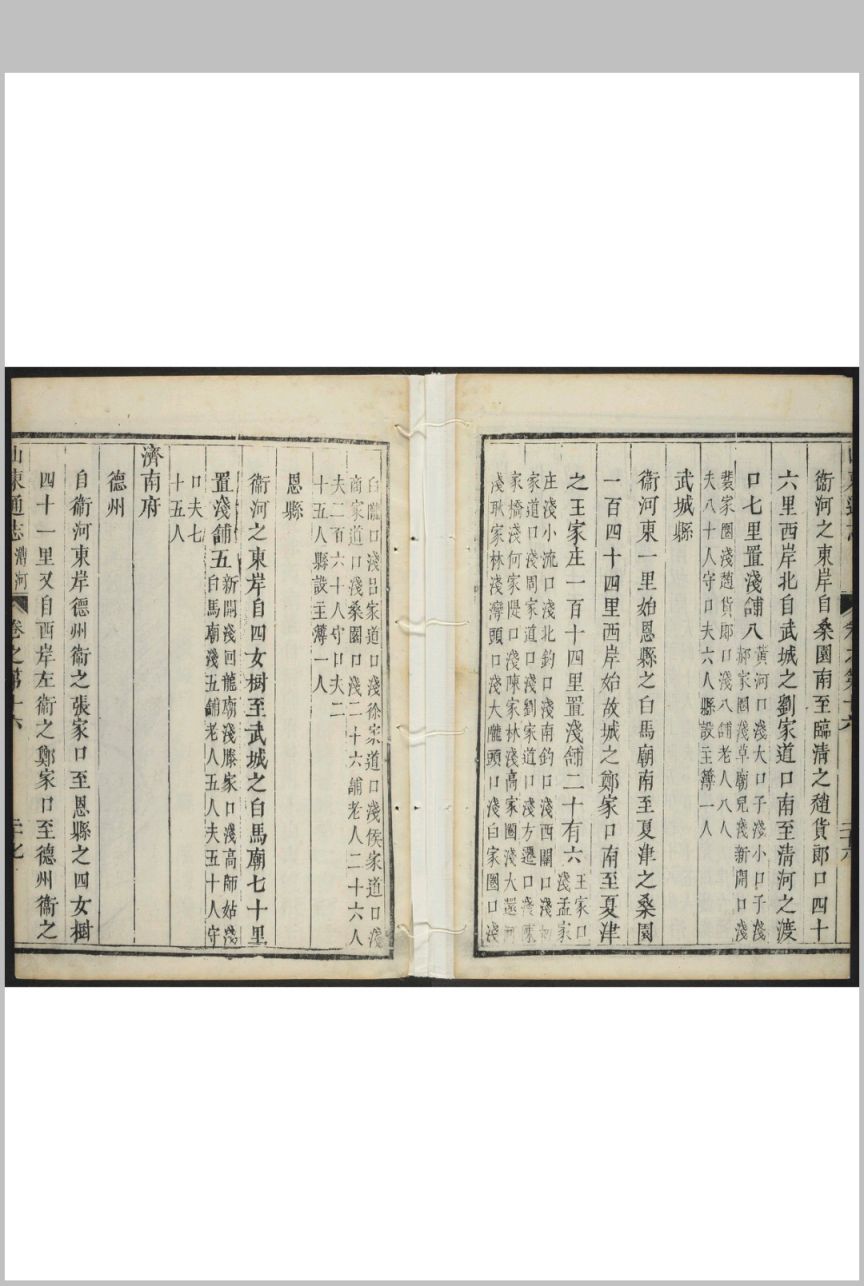 衞河之東岸自桑園南至臨清之趙貨郎口四十
六里西岸北自武城之劉家道口南至清河之渡
口七里置淺舖八
黄河口淺大口子淺小口子淺
郝家圈淺草廟兒淺新開口淺
裴家圈淺趙貨郎口淺八舖老人八人
夫八十人守口夫六人縣設主簿一人
武城縣
衞河東一里始恩縣之白馬廟南至夏津之桑園
一百四十四里西岸始故城之鄭家口南至夏津
之王家庄一百十四里置淺舖二十有六
王家口
淺孟家
庄淺小流口淺北釣口淺南釣口淺西關口淺
家道口淺周家道口淺劉家道口淺方遷口淺陳
家橋淺何家堤口淺陳家林淺髙家圈淺大還河
淺耿家林淺灣頭口淺大隴頭口淺白家圈口淺
白隴口淺呂家道口淺徐家道口淺侯家道口淺
商家道口淺桑園口淺二十六舖老人二十六人
夫二百六十人守口夫二
十五人縣設主簿一人
恩縣
衞河之東岸自四女樹至武城之白馬廟七十里
置淺舖五
新開淺回龍廟淺滕家口淺高師姑淺
白馬廟淺五舖老人五人夫五十人守
口夫七
十五人
濟南府
德州
自衞河東岸德州衞之張家口至恩縣之四女樹
四十一里又自西岸左衞之鄭家口至德州衞之
山東通志 漕河 卷之第十六